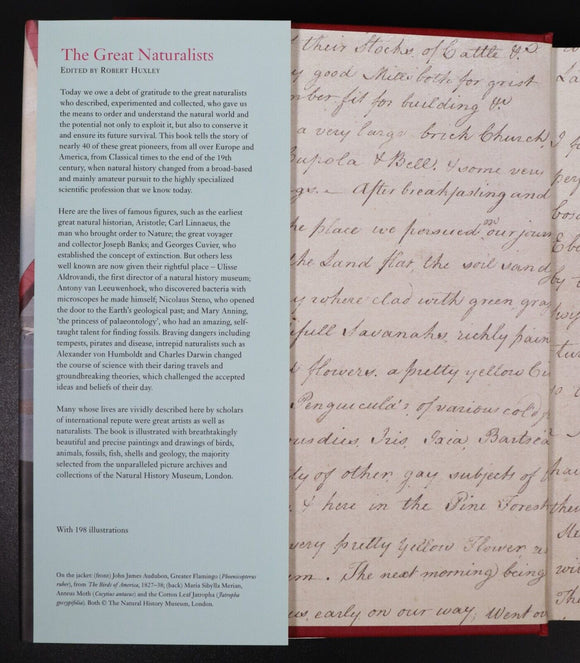 The Great Naturalists
EDITED BY ROBERT HUXLEY
Today we owe a debt of gratitude to the great naturalists
who described, experimented and collected, who gave us
the means to order and understand the natural world and
the potential not only to exploit it, but also to conserve it
and ensure its future survival. This book tells the story of
nearly 40 of these great pioneers, from all over Europe and
America, from Classical times to the end of the 19th
century, when natural history changed from a broad-based
and mainly amateur pursuit to the highly specialized
scientific profession that we know today.
Here are the lives of famous figures, such as the earliest
great natural historian, Aristotle; Carl Linnaeus, the
man who brought order to Nature; the great voyager
and collector Joseph Banks; and Georges Cuvier, who
established the concept of extinction. But others less
well known are now given their rightful place – Ulisse
Aldrovandi, the first director of a natural history museum;
Antony van Leeuwenhoek, who discovered bacteria with
microscopes he made himself; Nicolaus Steno, who opened
the door to the Earth's geological past; and Mary Anning,
'the princess of palaeontology', who had an amazing, self-
taught talent for finding fossils. Braving dangers including
tempests, pirates and disease, intrepid naturalists such as
Alexander von Humboldt and Charles Darwin changed
the course of science with their daring travels and
groundbreaking theories, which challenged the accepted
ideas and beliefs of their day.
Many whose lives are vividly described here by scholars
of international repute were great artists as well as
naturalists. The book is illustrated with breathtakingly
beautiful and precise paintings and drawings of birds,
animals, fossils, fish, shells and geology, the majority
selected from the unparalleled picture archives and
collections of the Natural History Museum, London.
With 198 illustrations
On the jacket: (front) John James Audubon, Greater Flamingo (Phoenicopterus
ruber), from The Birds of America, 1827–38; (back) Maria Sibylla Merian,
Anteus Moth (Cocytius antaeus) and the Cotton Leaf Jatropha (Jatropha
gossypifolia). Both © The Natural History Museum, London.
their Stocks of Cattle &c.
good Mills both for grist
fit for building &c
a very large brick Church,
Cupola & Bell! & some very
After breakfasting and
the place we persued on our journ
the Land flat, the soil sand
where clad with green gra
Savanahs, richly pain
& flowers. a pretty yellow
Penguicula's of various
Iris, Ixia, Bartsea
of other gay subjects of
& here in the Pine Forest
very pretty Yellow Flower
The next morning being
early on our way; Went